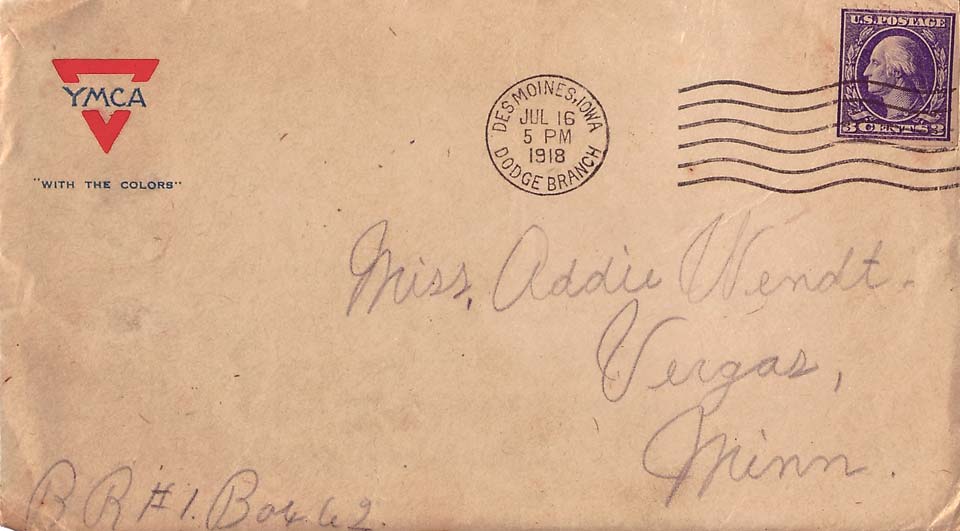 YMCA
"WITH THE COLORS"
DES MOINES, IOWA
JUL 16
5 PM
1918
DODGE BRANCH
U.S. POSTAGE
3 CENTS 3
Miss, Addie Wendt.
Vergas,
Minn.
R R #1. Box 62.